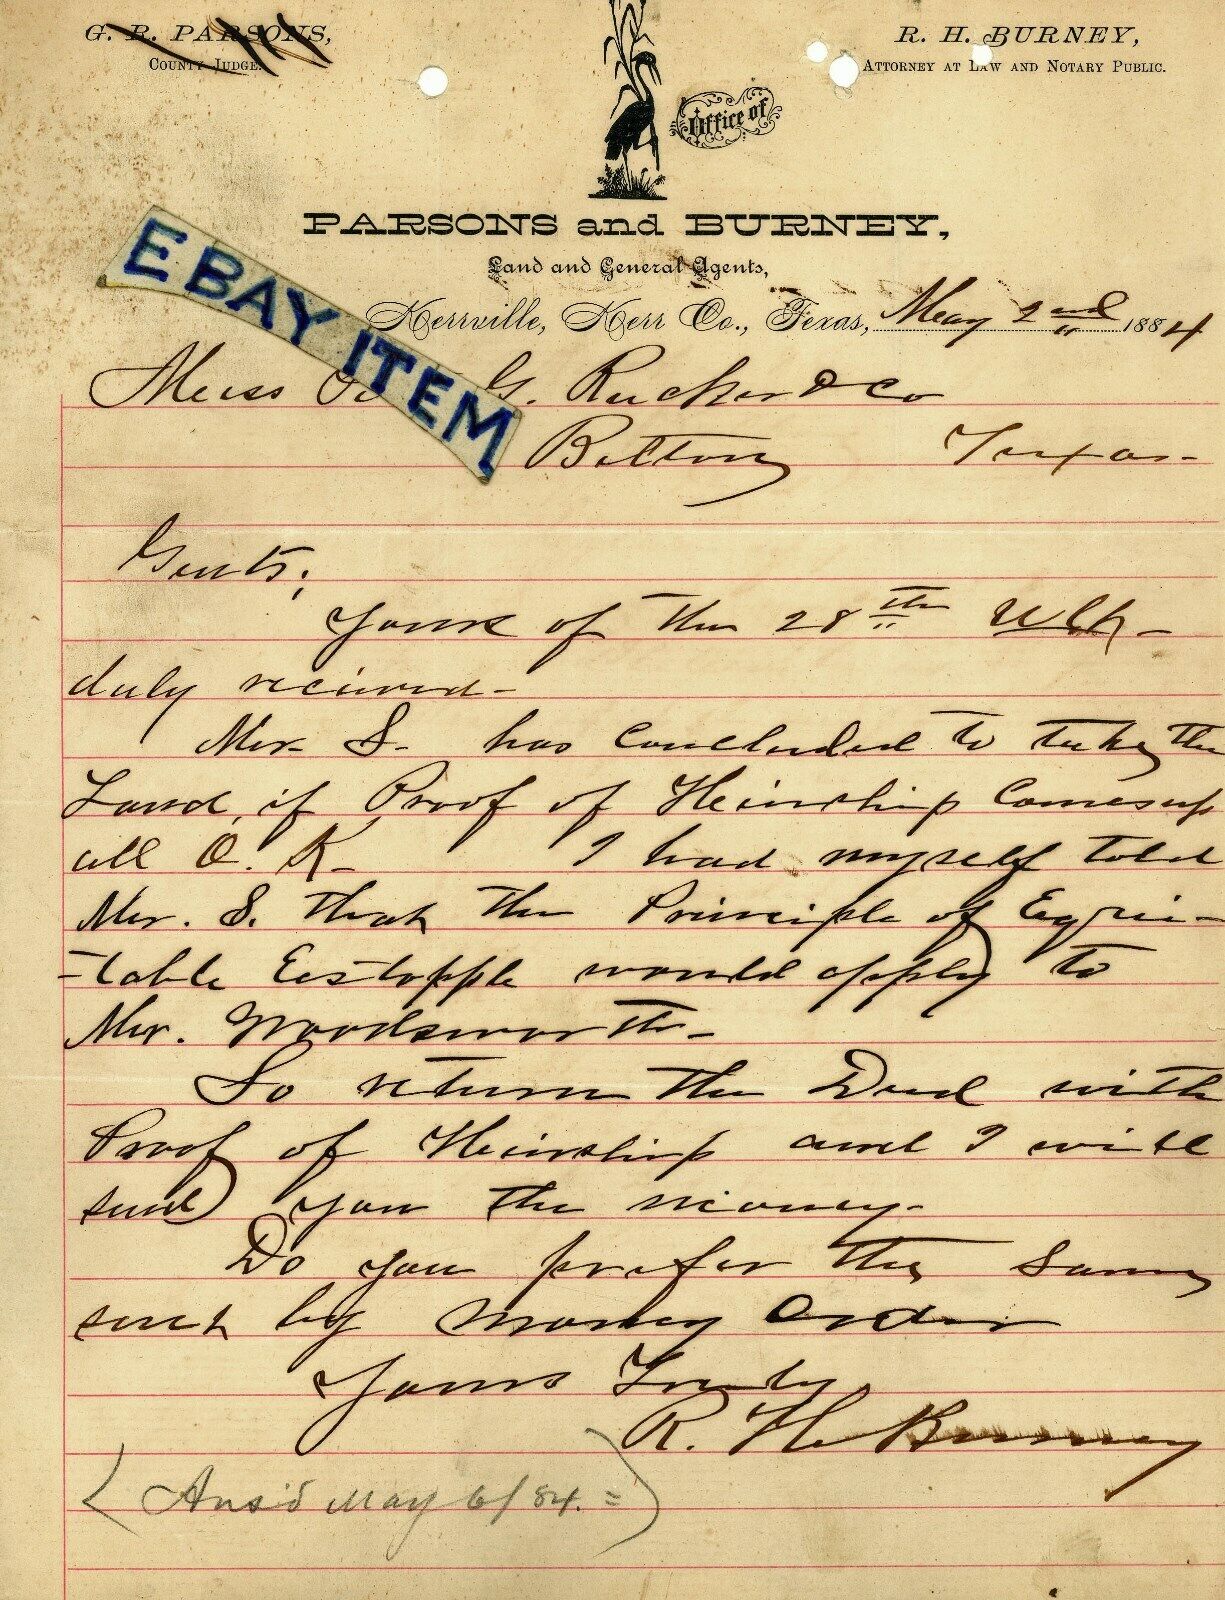 G. R. PARSONS,
COUNTY JUDGE.
R. H. BURNEY,
ATTORNEY AT LAW AND NOTARY PUBLIC.
Office of
PARSONS and BURNEY,
Land and General Agents,
Kerrville, Kerr Co., Texas, May 2nd 1884
EBAY ITEM
Mess G. Rucker & Co
Belton Texas-
Gents;
Yours of the 28th Ult-
duly recieved-
Mr. S. has concluded to take the
Land, if Proof of Heirship comes up
all O. K- I had myself told
Mr. S. that the Principle of Equi-
-table Estopple would apply to
Mr. Woodsworth-
So return the Deed with
Proof of Heirship and I will
send you the money-
Do you prefer the same
sent by money order
Yours Truly
R. H. Burney
(Ans'd May 6/84.=)